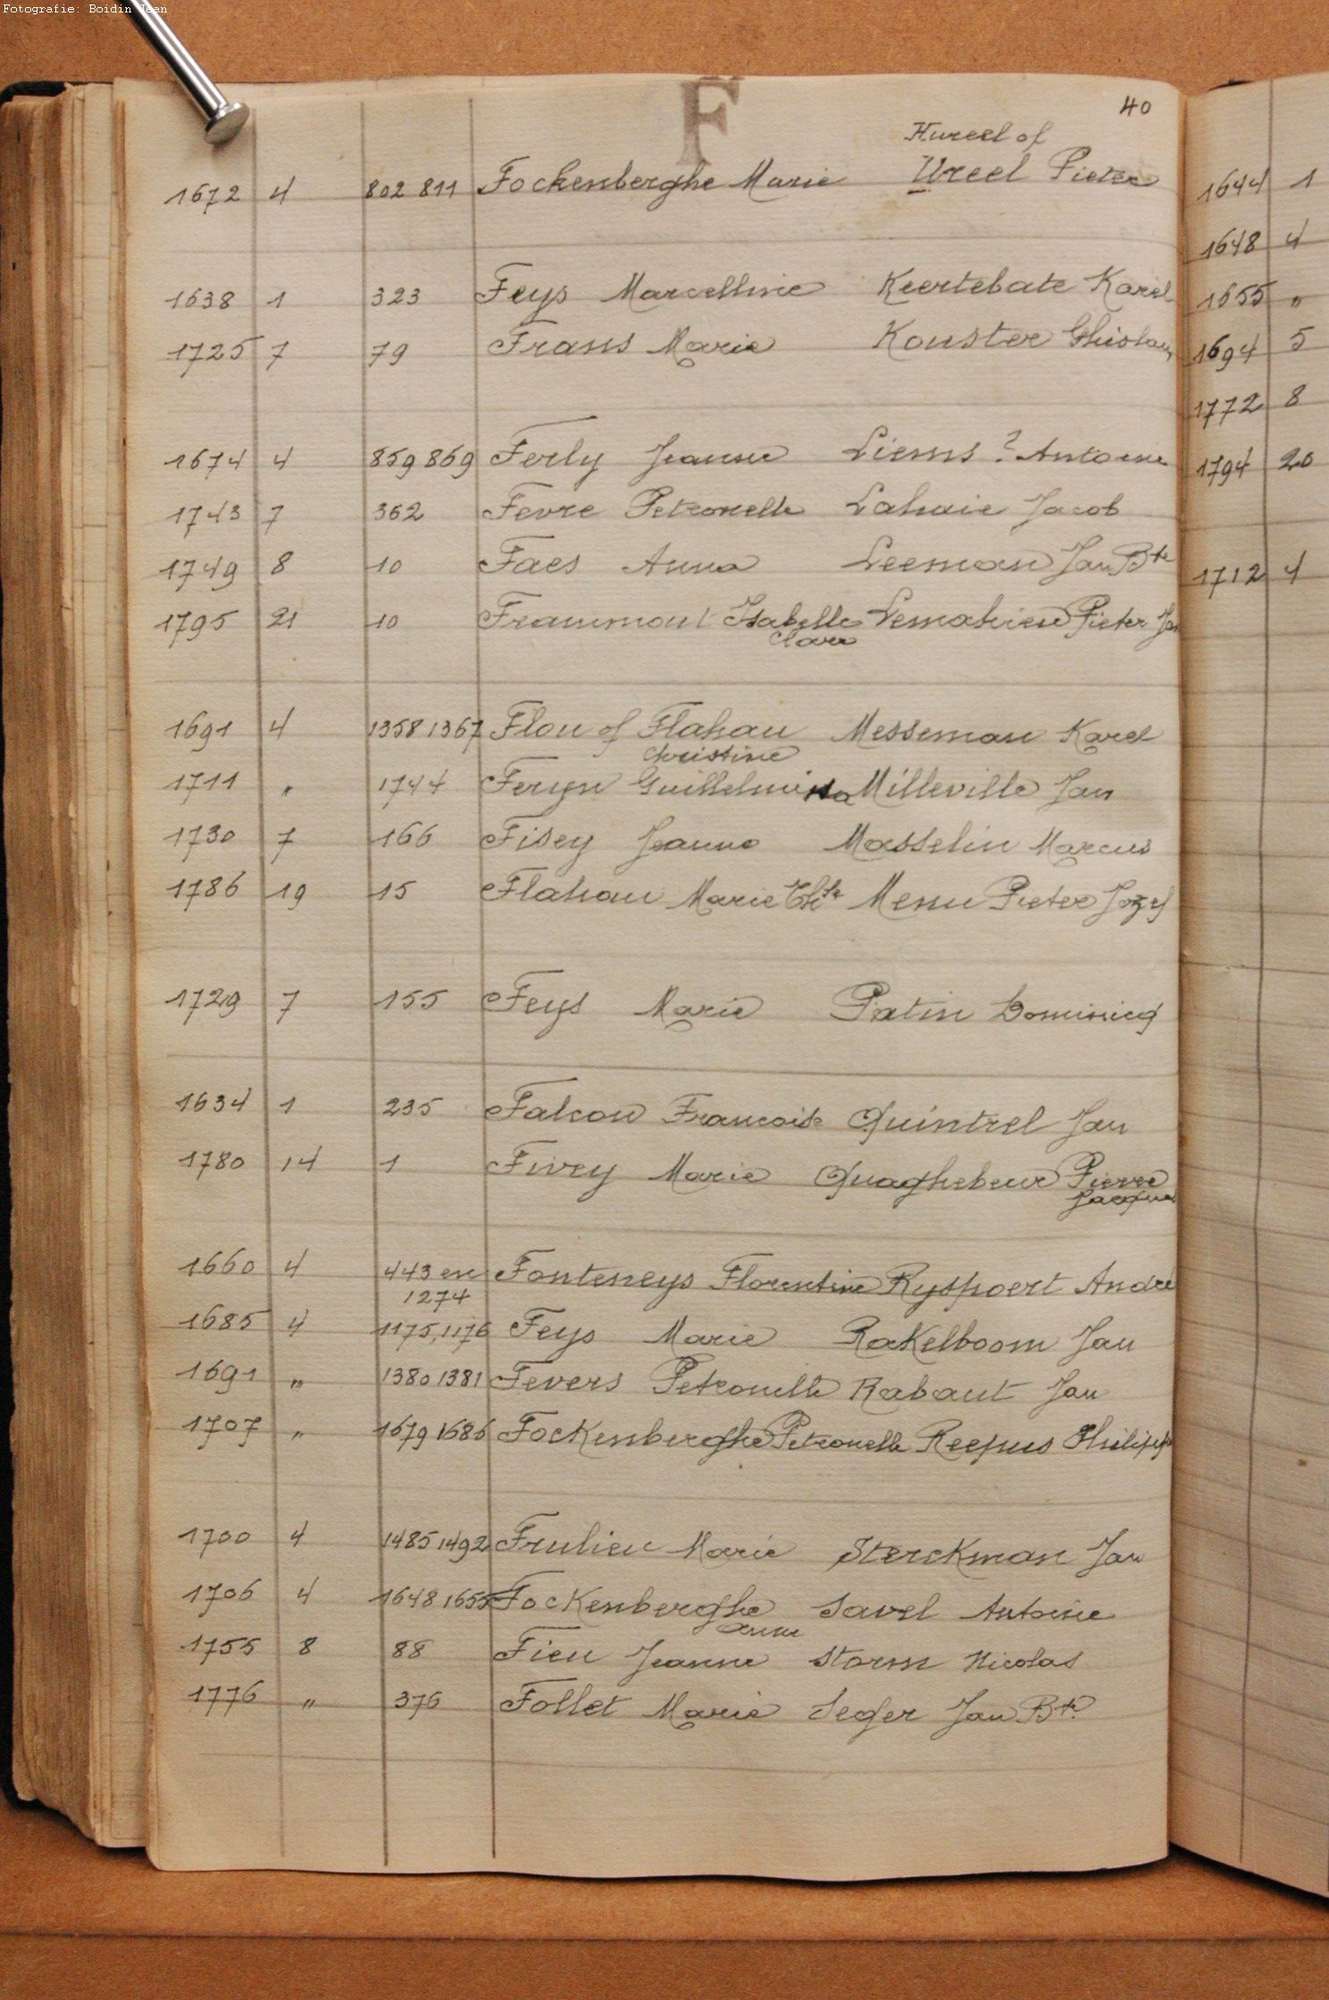 Fotografie: Boidin Jean
F
40
Hureel of
1672 4 802 811 Fockenberghe Marie Ureel Pieter
1638 1 323 Feys Marcelline Keertebate Karel
1725 7 79 Frans Marie Kouster Ghislain
1674 4 859 869 Ferly Jeanne Liems ? Antoine
1743 7 362 Fevre Petronelle Lahaie Jacob
1749 8 10 Faes Anna Leeman Jan Bte
1795 21 10 Frammont Isabelle Lemahieu Pieter Jan
Clare
1691 4 1358 1367 Flou of Flahau Messeman Karel
Christine
1711 " 1744 Feryn Guillelmina Milleville Jan
1730 7 166 Fisey Jeanne Masselin Marcus
1786 19 15 Flahau Marie Thse Menu Pieter Jozef
1729 7 155 Feys Marie Patin Dominicq
1634 1 235 Falcon Francoise Quintrel Jan
1780 14 1 Fivey Marie Quaghebeur Pierre
Jacques
1660 4 443 en Fonteneys Florentine Ryspoert André
1274
1685 4 1175, 1176 Feys Marie Rakelboom Jan
1691 " 1380 1381 Fevers Petronille Rabaut Jan
1707 " 1679 1686 Fockenberghe Petronelle Reepus Philippe
1700 4 1485 1492 Frulieu Marie Sterckman Jan
1706 4 1648 1655 Fockenberghe Savel Antoine
Anne
1755 8 88 Fieu Jeanne Storm Nicolas
1776 " 376 Follet Marie Seger Jan Bte
1644 1
1648 4
1655 "
1694 5
1772 8
1794 20
1712 4